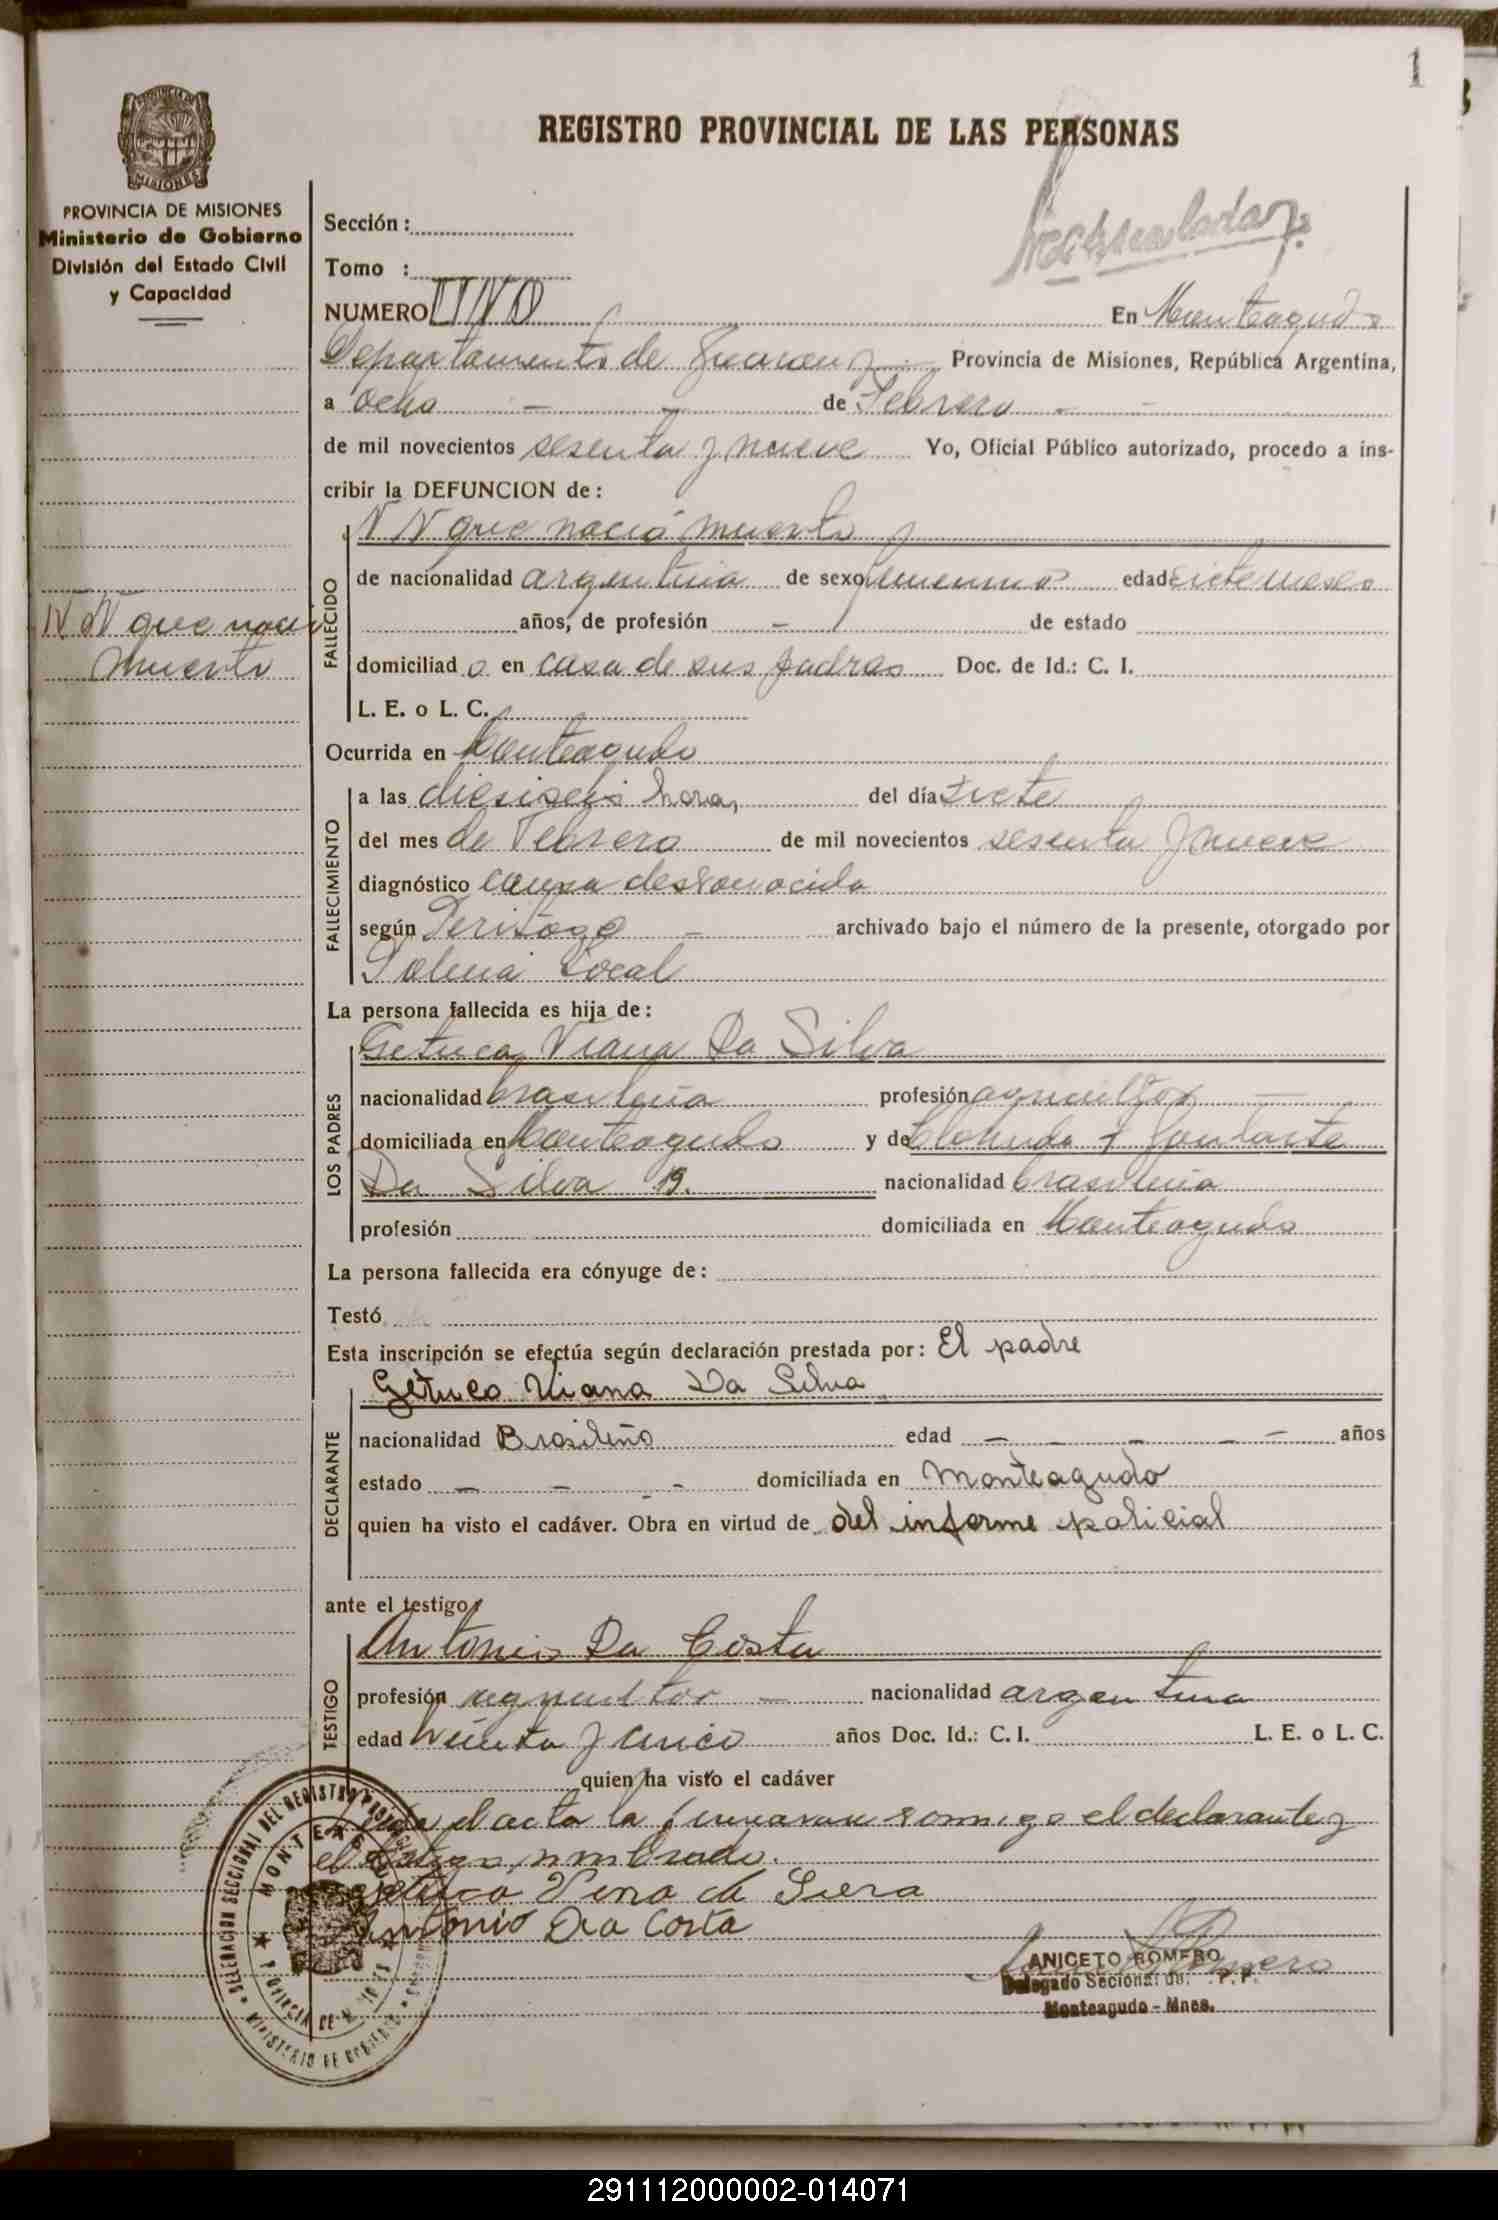 1
REGISTRO PROVINCIAL DE LAS PERSONAS
MISIONES
PROVINCIA DE MISIONES
Ministerio de Gobierno
División del Estado Civil
y Capacidad
Sección :
Tomo :
NUMERO UNO En Monteagudo
Departamento de Guarani Provincia de Misiones, República Argentina,
a ocho - - de Febrero - -
de mil novecientos sesenta y nueve Yo, Oficial Público autorizado, procedo a ins-
cribir la DEFUNCION de :
N N que nació muerto
N N que nacio
muerto
FALLECIDO
de nacionalidad argentina de sexo femenino edad siete meses
años, de profesión - de estado
domiciliad o en casa de sus padres Doc. de Id.: C. I.
L. E. o L. C.
Ocurrida en Monteagudo
FALLECIMIENTO
a las dieciseis horas, del día siete
del mes de Febrero de mil novecientos sesenta y nueve
diagnóstico causa desconocida
según - archivado bajo el número de la presente, otorgado por
Policia Local
La persona fallecida es hija de :
LOS PADRES
Viana Da Silva
nacionalidad brasileña profesión agricultor -
domiciliada en Monteagudo y de
Da Silva nacionalidad brasileña
profesión domiciliada en Monteagudo
La persona fallecida era cónyuge de :
Testó
Esta inscripción se efectúa según declaración prestada por : El padre
DECLARANTE
Viana Da Silva
nacionalidad Brasileño edad - - - - - años
estado - - - - domiciliada en Monteagudo
quien ha visto el cadáver. Obra en virtud de del informe policial
ante el testigo
TESTIGO
Antonio Da Costa
profesión agricultor - nacionalidad argentina
edad años Doc. Id.: C. I. L. E. o L. C.
quien ha visto el cadáver
el acta la firmaran conmigo el declarante y
el testigo nombrado.
Antonio Da Costa
ANICETO ROMERO
Delegado Seccional de
Monteagudo - Mnes.
291112000002-014071